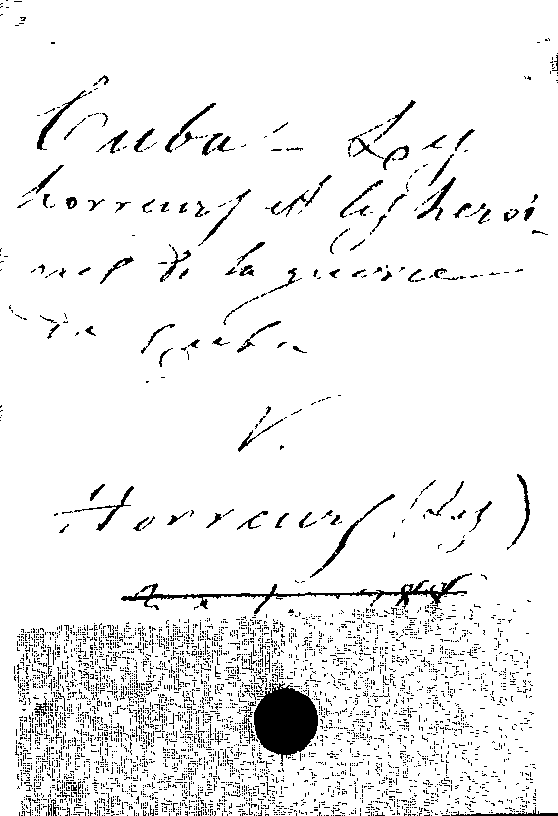 Cuba - Les
horreurs et les heroï-
nes de la guerre
de Cuba
V.
Horreurs (Les)